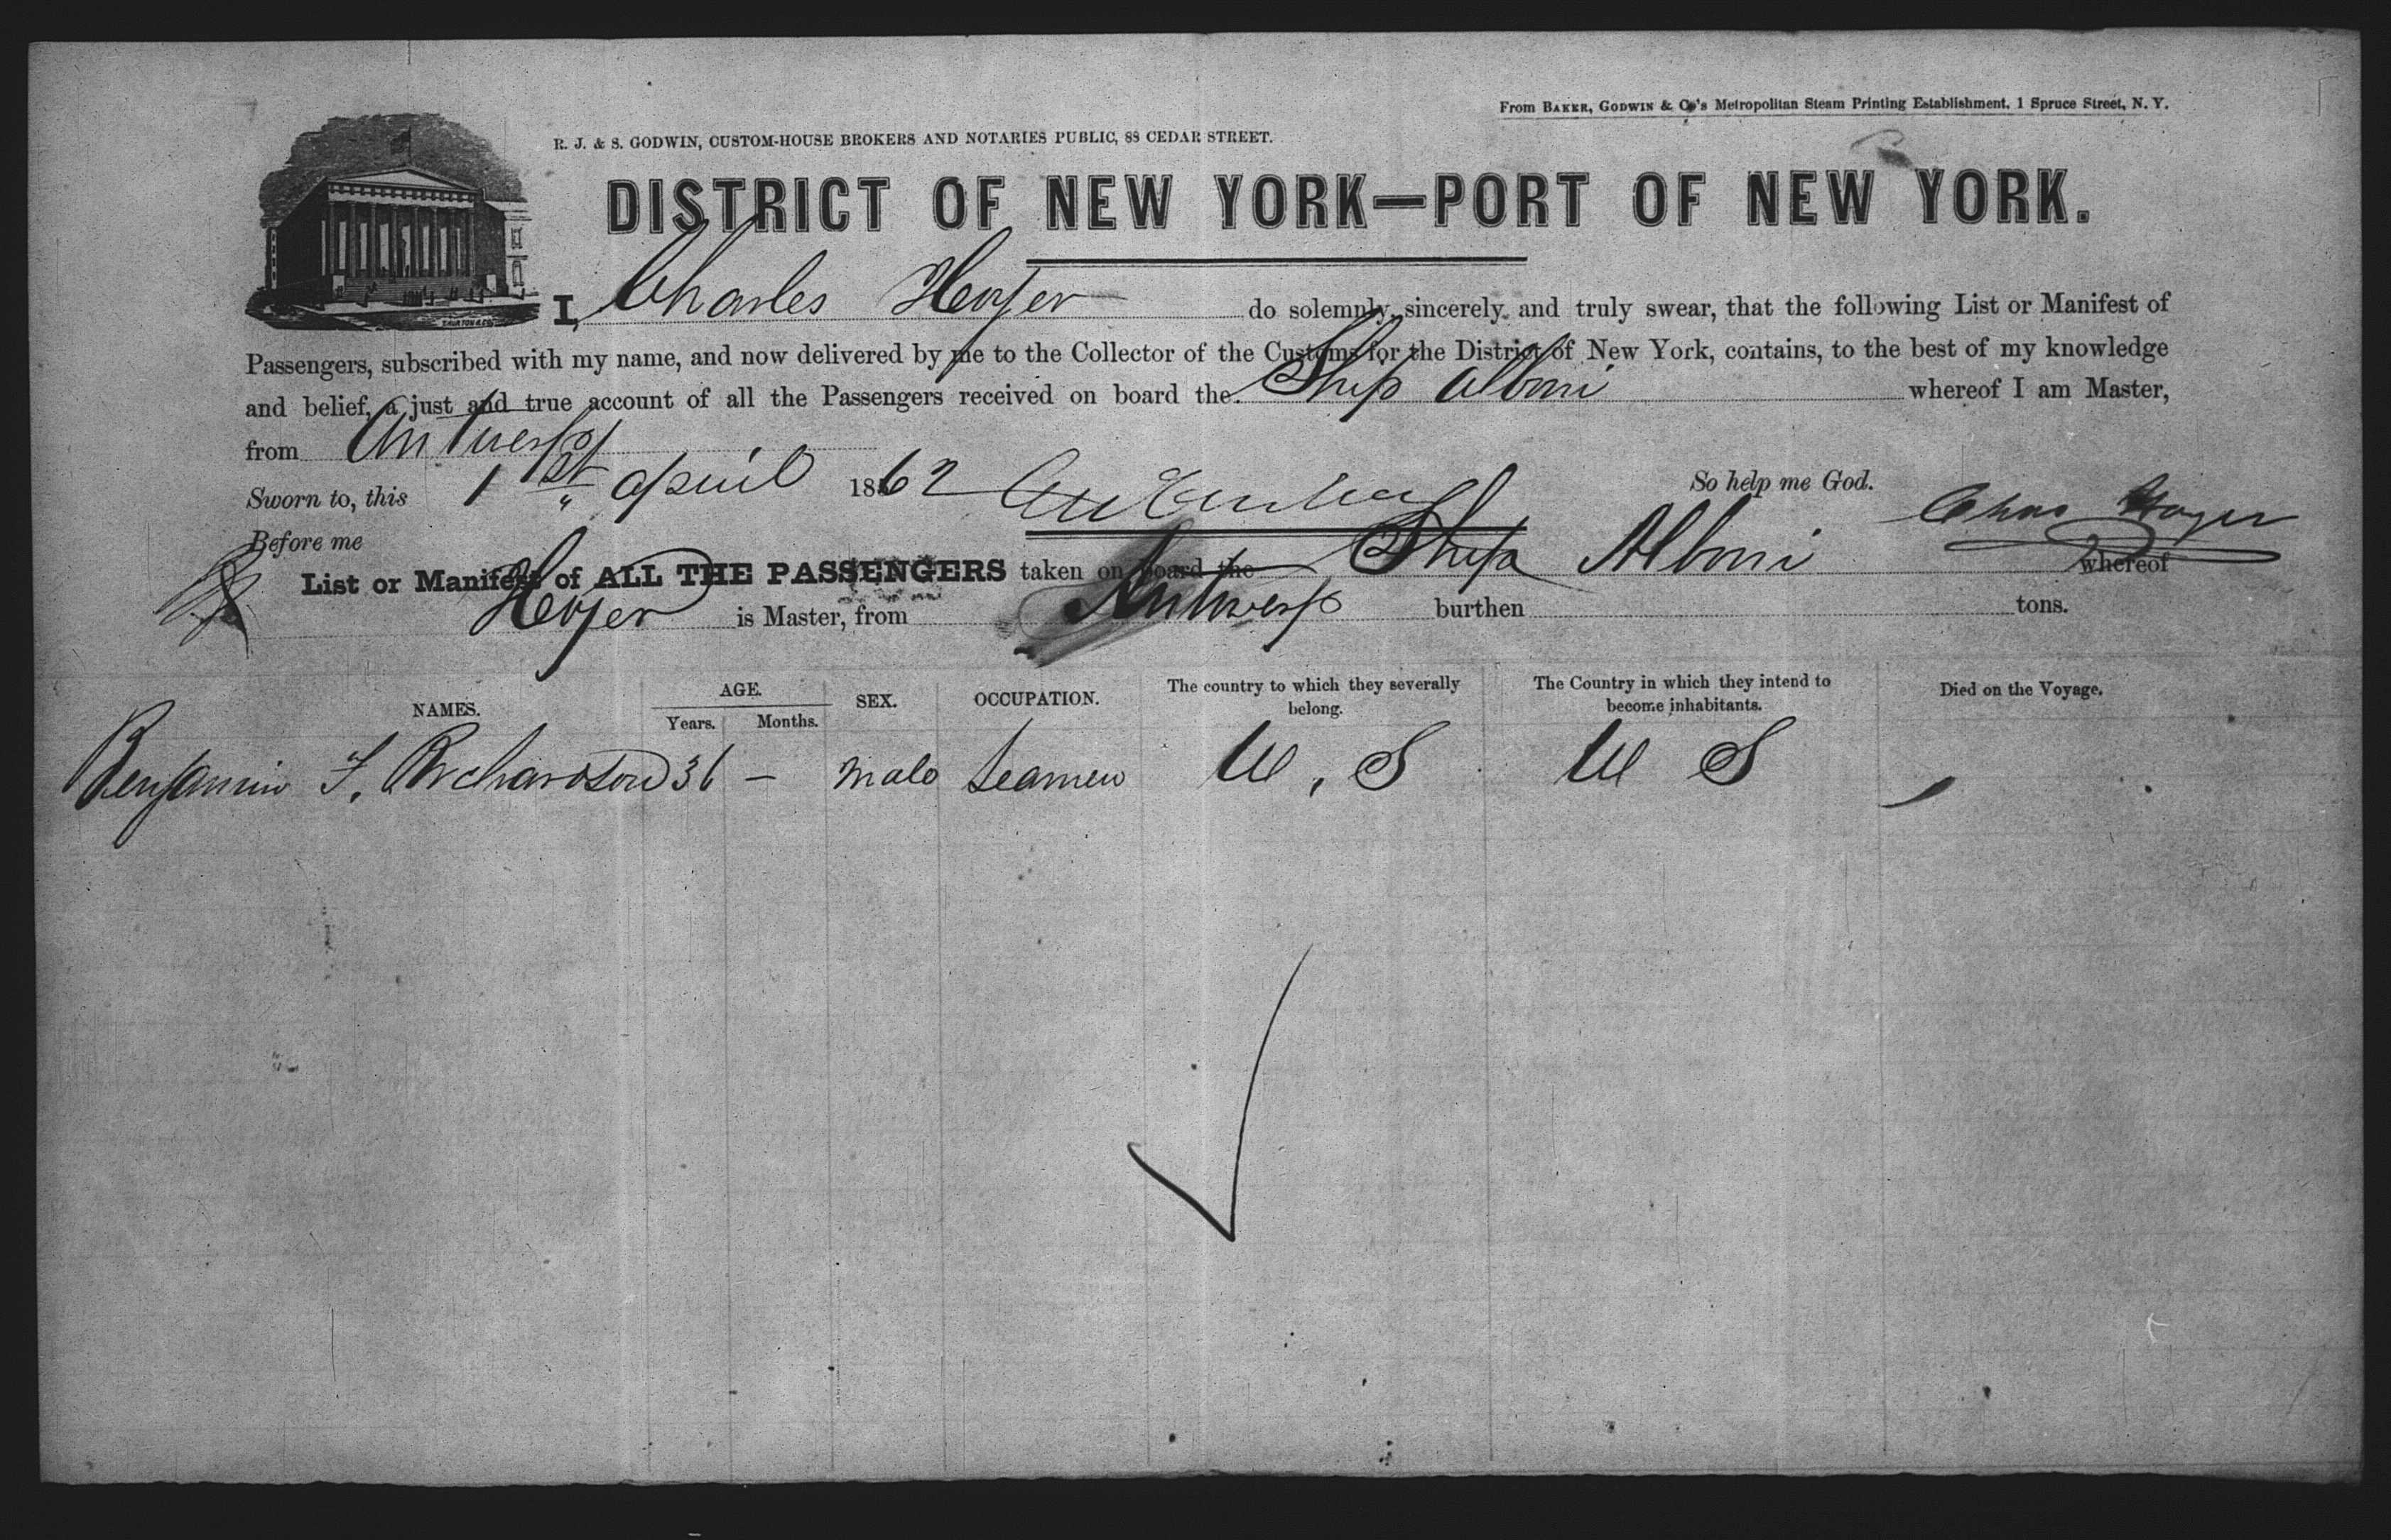 From BAKER, GODWIN & Co's Metropolitan Steam Printing Establishment, 1 Spruce Street, N. Y.
R. J. & S. GODWIN, CUSTOM-HOUSE BROKERS AND NOTARIES PUBLIC, 88 CEDAR STREET.
DISTRICT OF NEW YORK—PORT OF NEW YORK.
I, Charles Hoyer do solemnly, sincerely and truly swear, that the following List or Manifest of
Passengers, subscribed with my name, and now delivered by me to the Collector of the Customs for the District of New York, contains, to the best of my knowledge
and belief, a just and true account of all the Passengers received on board the Ship Alboni whereof I am Master,
from Antwerp
Sworn to, this 1st April 1862 So help me God. Chas Hoyer
Before me
List or Manifest of ALL THE PASSENGERS taken on board the Ship Alboni whereof
Hoyer is Master, from Antwerp burthen tons.
NAMES. AGE. Years. Months. SEX. OCCUPATION. The country to which they severally belong. The Country in which they intend to become inhabitants. Died on the Voyage.
Benjamin F. Richardson 36 – Male Seamen U, S U S